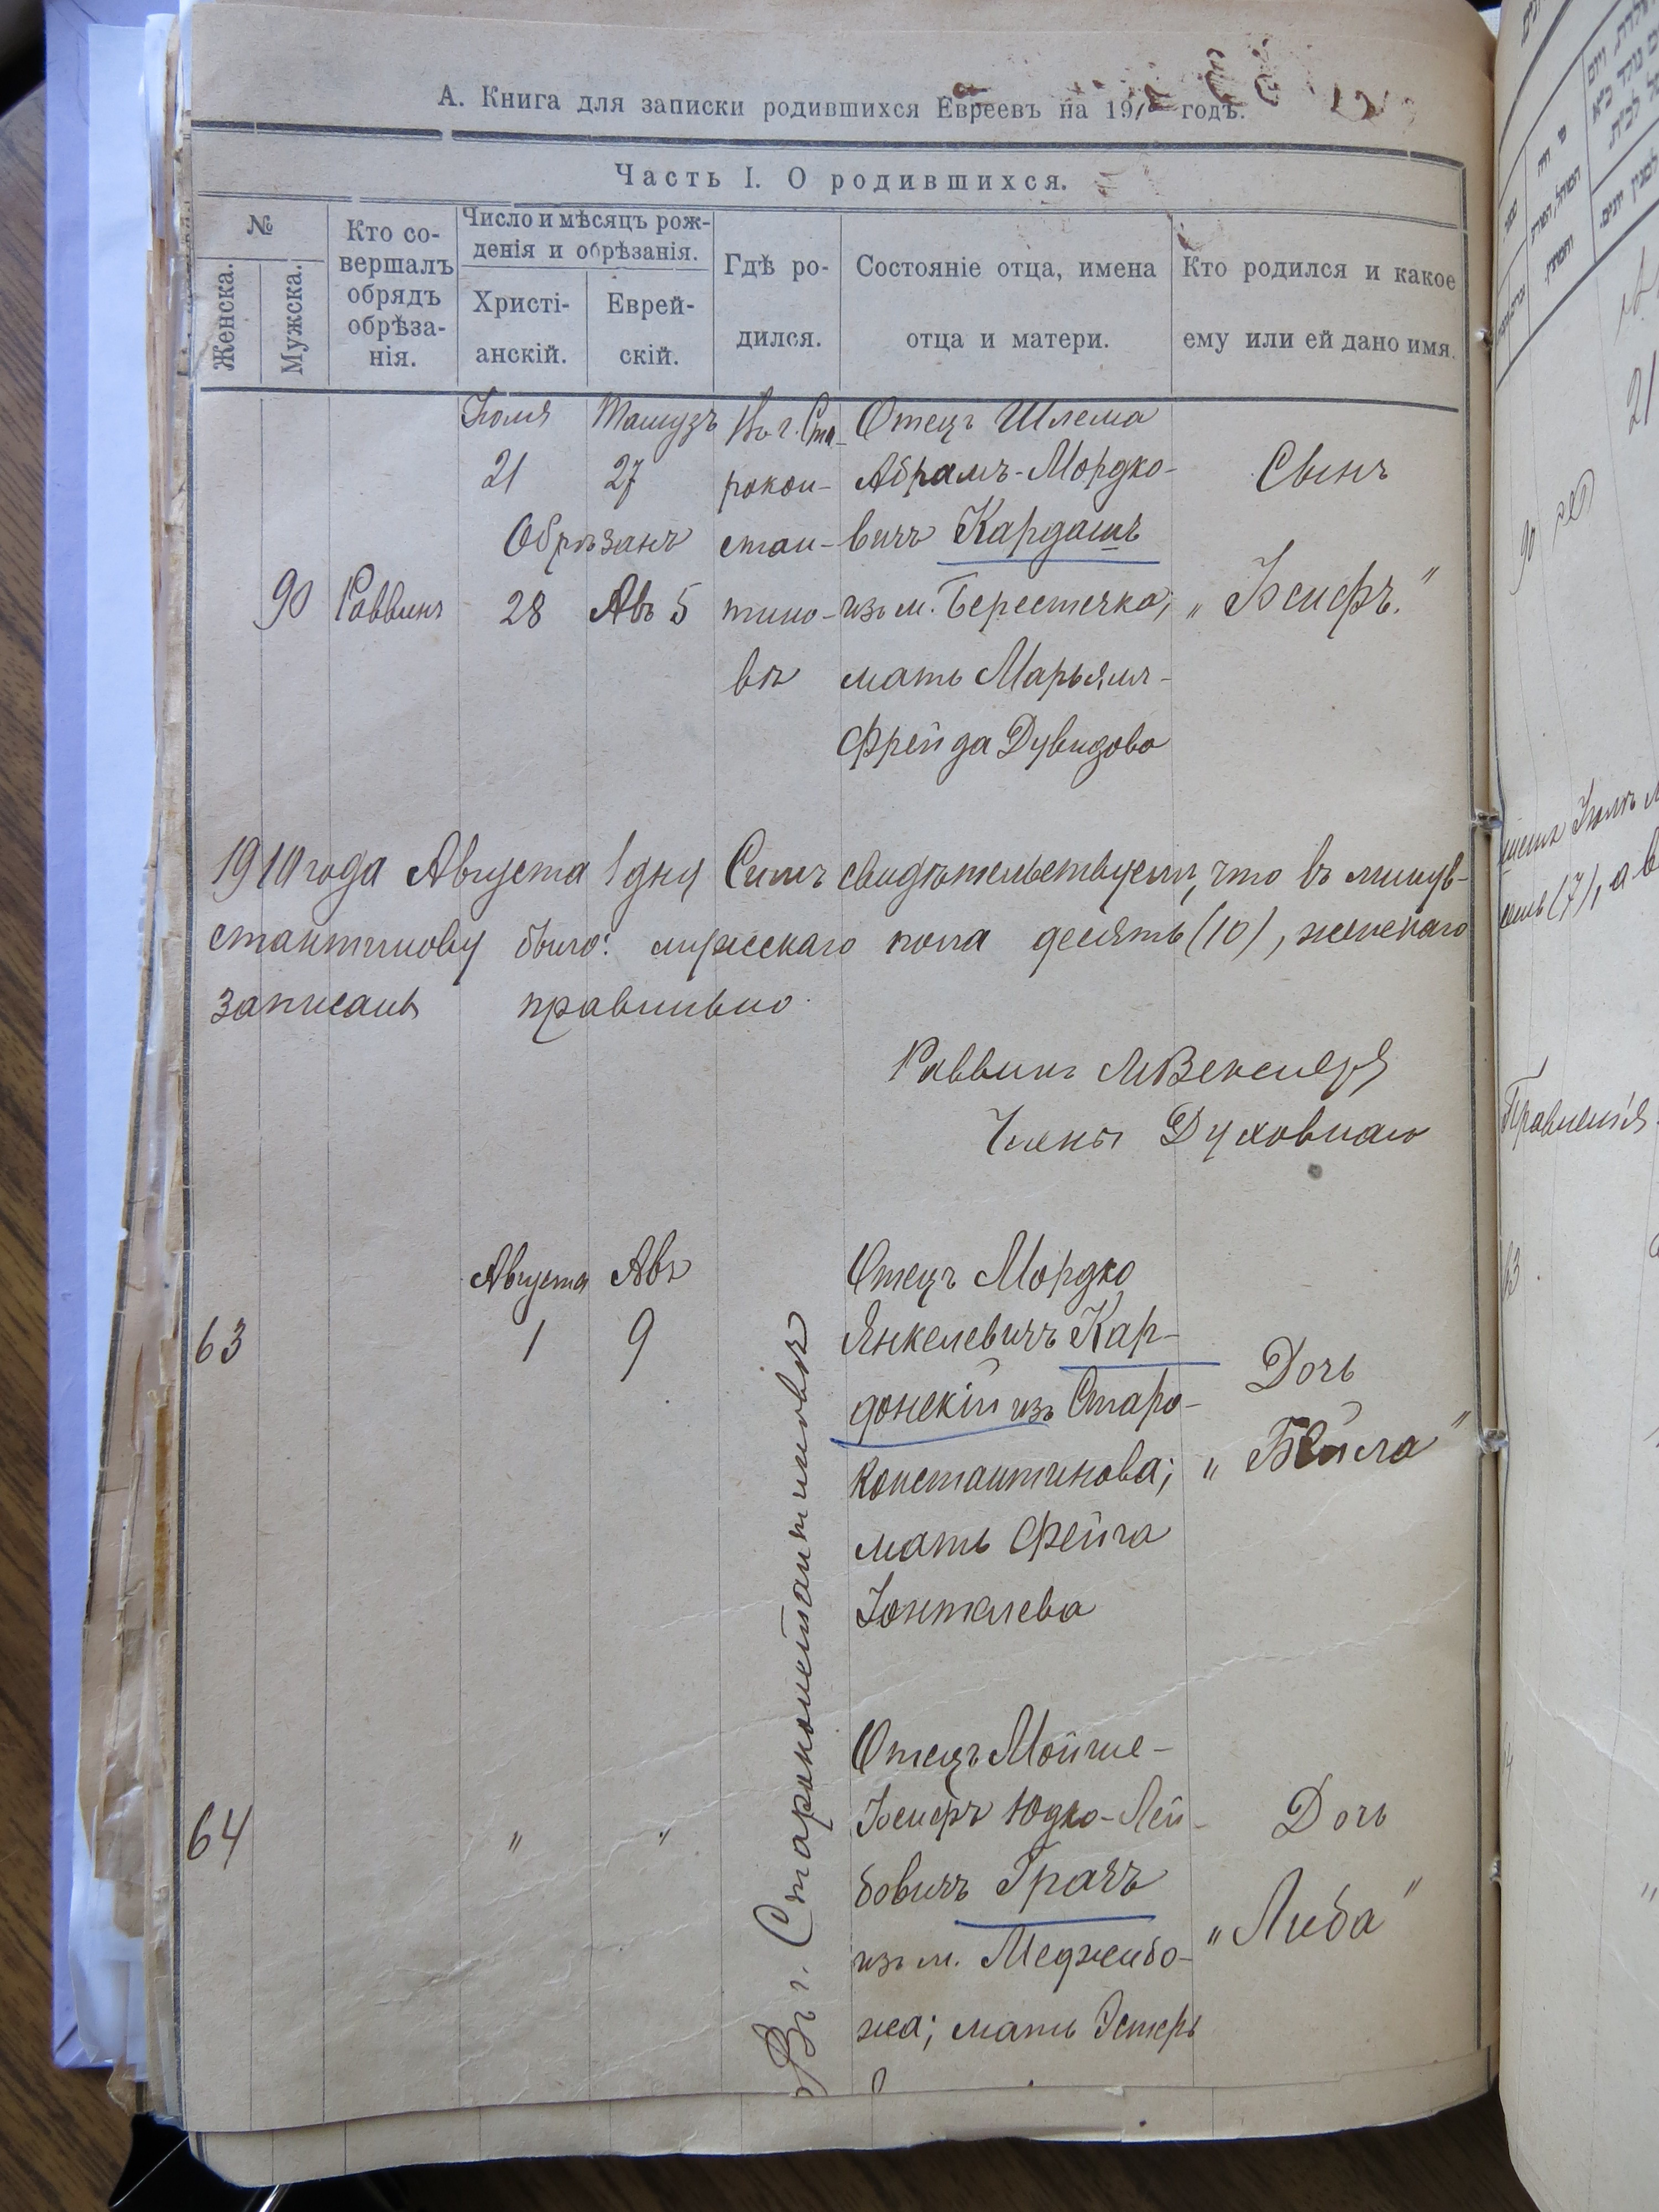 А. Книга для записки родившихся Евреевъ на 191 годъ.
Часть I. О родившихся.
№
Женска.
Мужска.
Кто со-
вершалъ
обрядъ
обрѣза-
нія.
Число и мѣсяцъ рож-
денія и обрѣзанія.
Христі-
анскій.
Еврей-
скій.
Гдѣ ро-
дился.
Состояніе отца, имена
отца и матери.
Кто родился и какое
ему или ей дано имя.
90
Раввинъ
Іюля
21
Тамузъ
27
Обрѣзанъ
28
Авъ 5
Въ г. Ста-
рокон-
стан-
тино-
вѣ
Отецъ Шлема
Абрамъ-Мордко-
вичъ Кардашъ
изъ м. Берестечка;
мать Марьямъ-
Фрейда Дувидова
Сынъ
„Іосифъ."
1910 года Августа 1 дня Симъ свидѣтельствуемъ, что въ минув-
стантинову было: мужескаго пола десять (10), женскаго
записаны правильно.
Раввинъ МВекслеръ
Члены Духовнаго
63
Августа
1
Авъ
9
Въ г. Староконстантиновѣ
Отецъ Мордко
Янкелевичъ Кар-
донскій изъ Старо-
константинова;
мать Фейга
Іонтилева
Дочь
„Бейла"
64
"
"
Отецъ Мойше-
Іосифъ Юдко-Лей-
бовичъ Грачъ
изъ м. Меджибо-
жа; мать Эстеръ
Дочь
„Либа"
Правленія